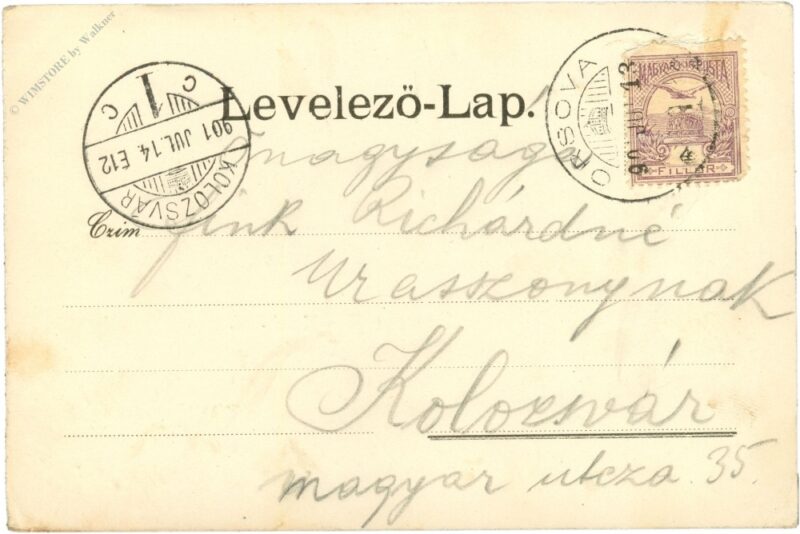 © WIMSTORE by Walkner
Levelező-Lap.
ORSOVA
MAGYAR KIR POSTA
4
FILLÉR
KOLOZSVÁR
901 JUL. 14. E12
1
C C
Őnagysága
Czim Fink Richárdné
Uraszonynak
Kolozsvár
magyar utcza. 35.